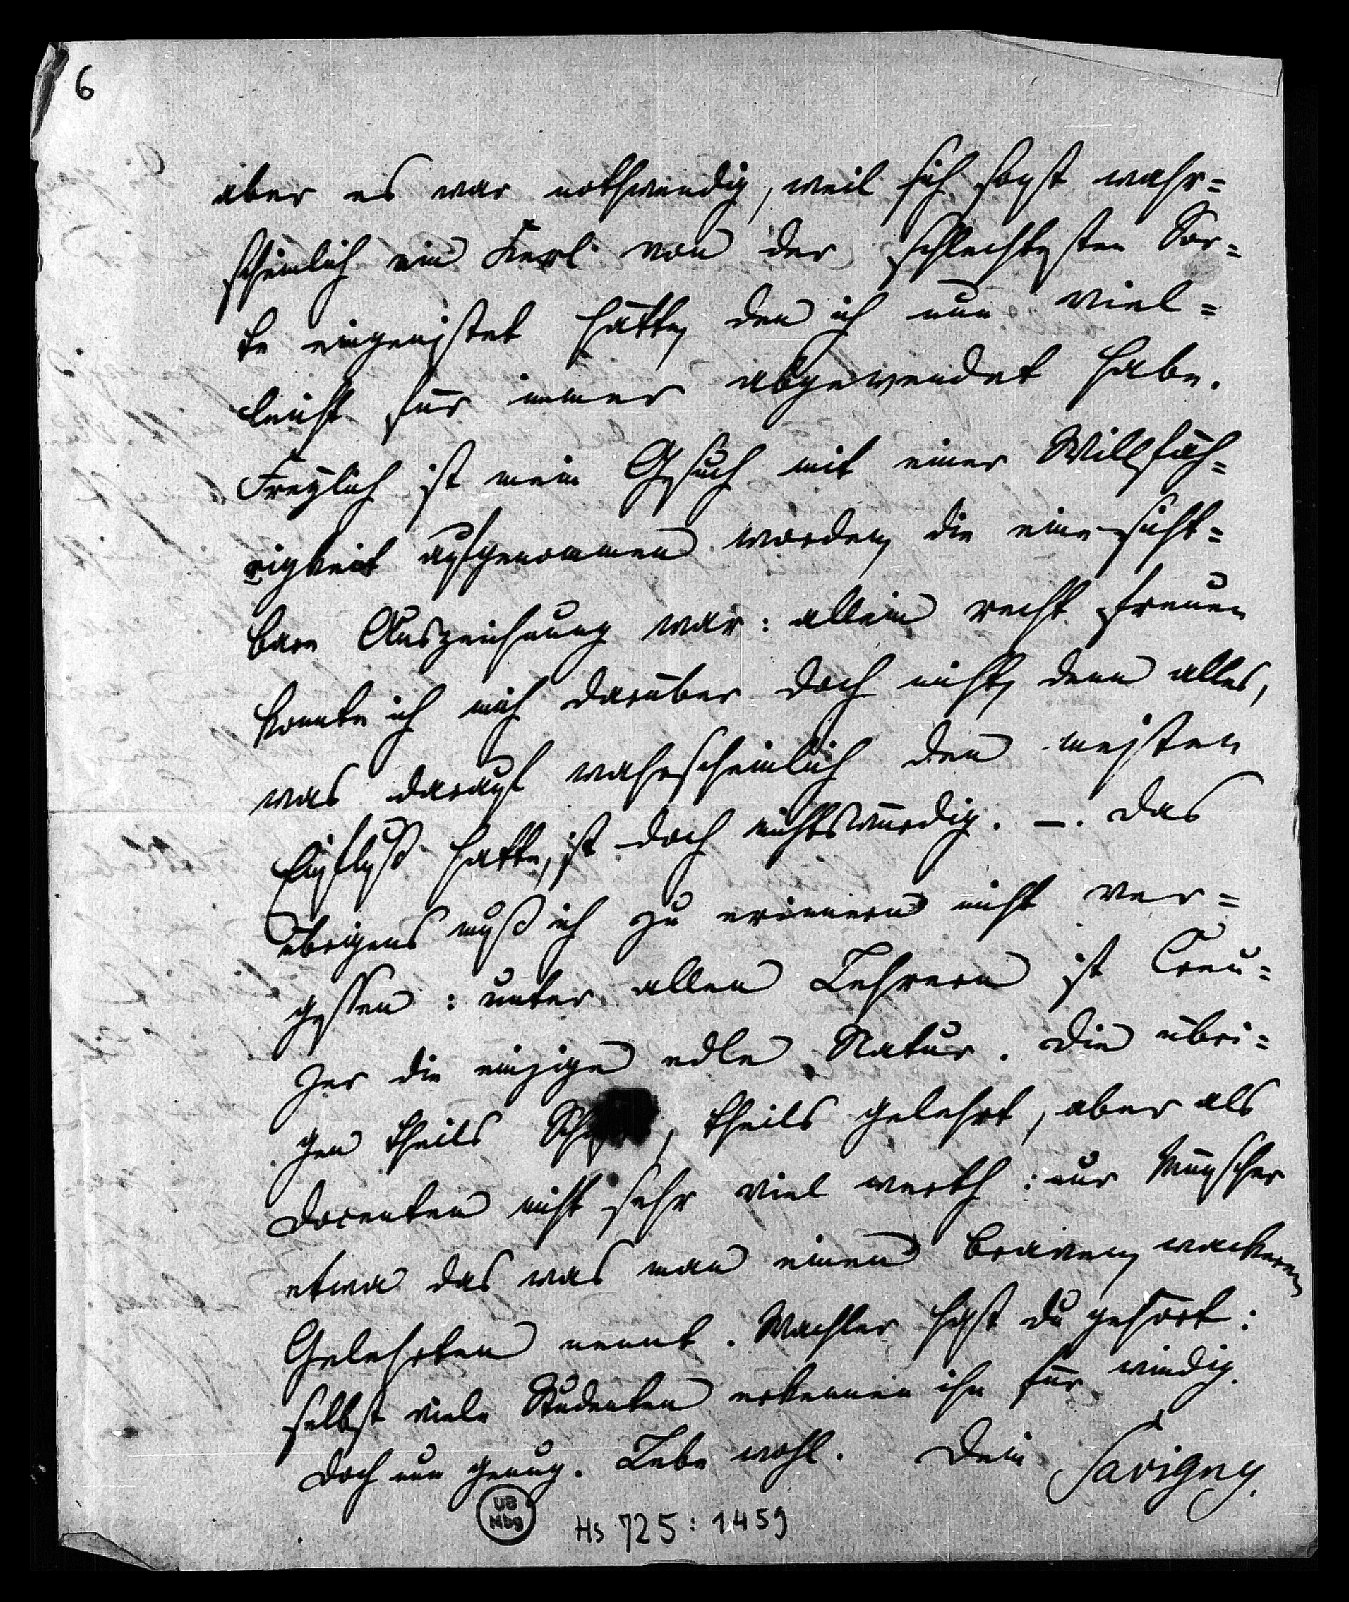 6
aber es war nothwendig, weil sich sonst wahr=
scheinlich ein Kerl von der schlechtesten Sor=
te eingenistet hätte, den ich nun viel=
leicht für immer abgewendet habe.
Freylich ist mein Gesuch mit einer Willfäh=
rigkeit aufgenommen worden, die eine sicht=
bare Auszeichnung war: allein recht freuen
konnte ich mich darüber doch nicht, denn alles,
was darauf wahrscheinlich den meisten
Einfluß hatte, ist doch nichtswürdig. –. Das
übrigens muß ich zu erinnern nicht ver=
gessen: unter allen Lehrern ist Creu=
zer die einzige edle Natur. Die übri=
gen theils, theils gelehrt, aber als
Docenten nicht sehr viel werth: nur Münscher
etwa das was man einen braven, wackeren
Gelehrten nennt. Wachler hast du gehört:
selbst viele Studenten erkennen ihn für windig.
Doch nun genug. Lebe wohl. Dein Savigny.
UB
Mbg
Hs 725:1459